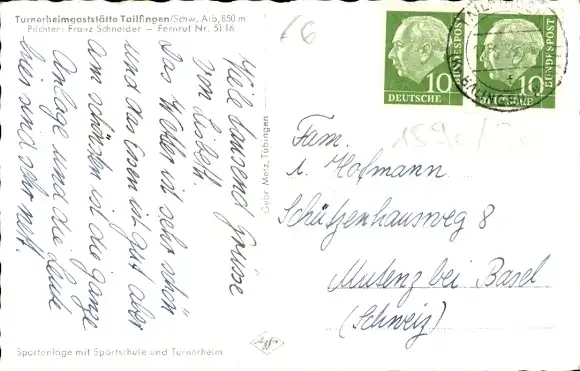 Turnerheimgaststätte Tailfingen/Schw. Alb, 850 m
Pächter: Franz Schneider — Fernruf Nr. 5116
Viele tausend Grüsse
von Lisbett
Das Wetter ist sehr schön
und das Essen ist gut aber
am schönsten ist die ganze
Anlage und die Leute
hier sind sehr nett.
Gebr. Metz, Tübingen
16
10
DEUTSCHE
BUNDESPOST
10
BUNDESPOST
Fam.
Hofmann
Schützenhausweg 8
Mutenz bei Basel
(Schweiz)
Agfa
Sportanlage mit Sportschule und Turnerheim